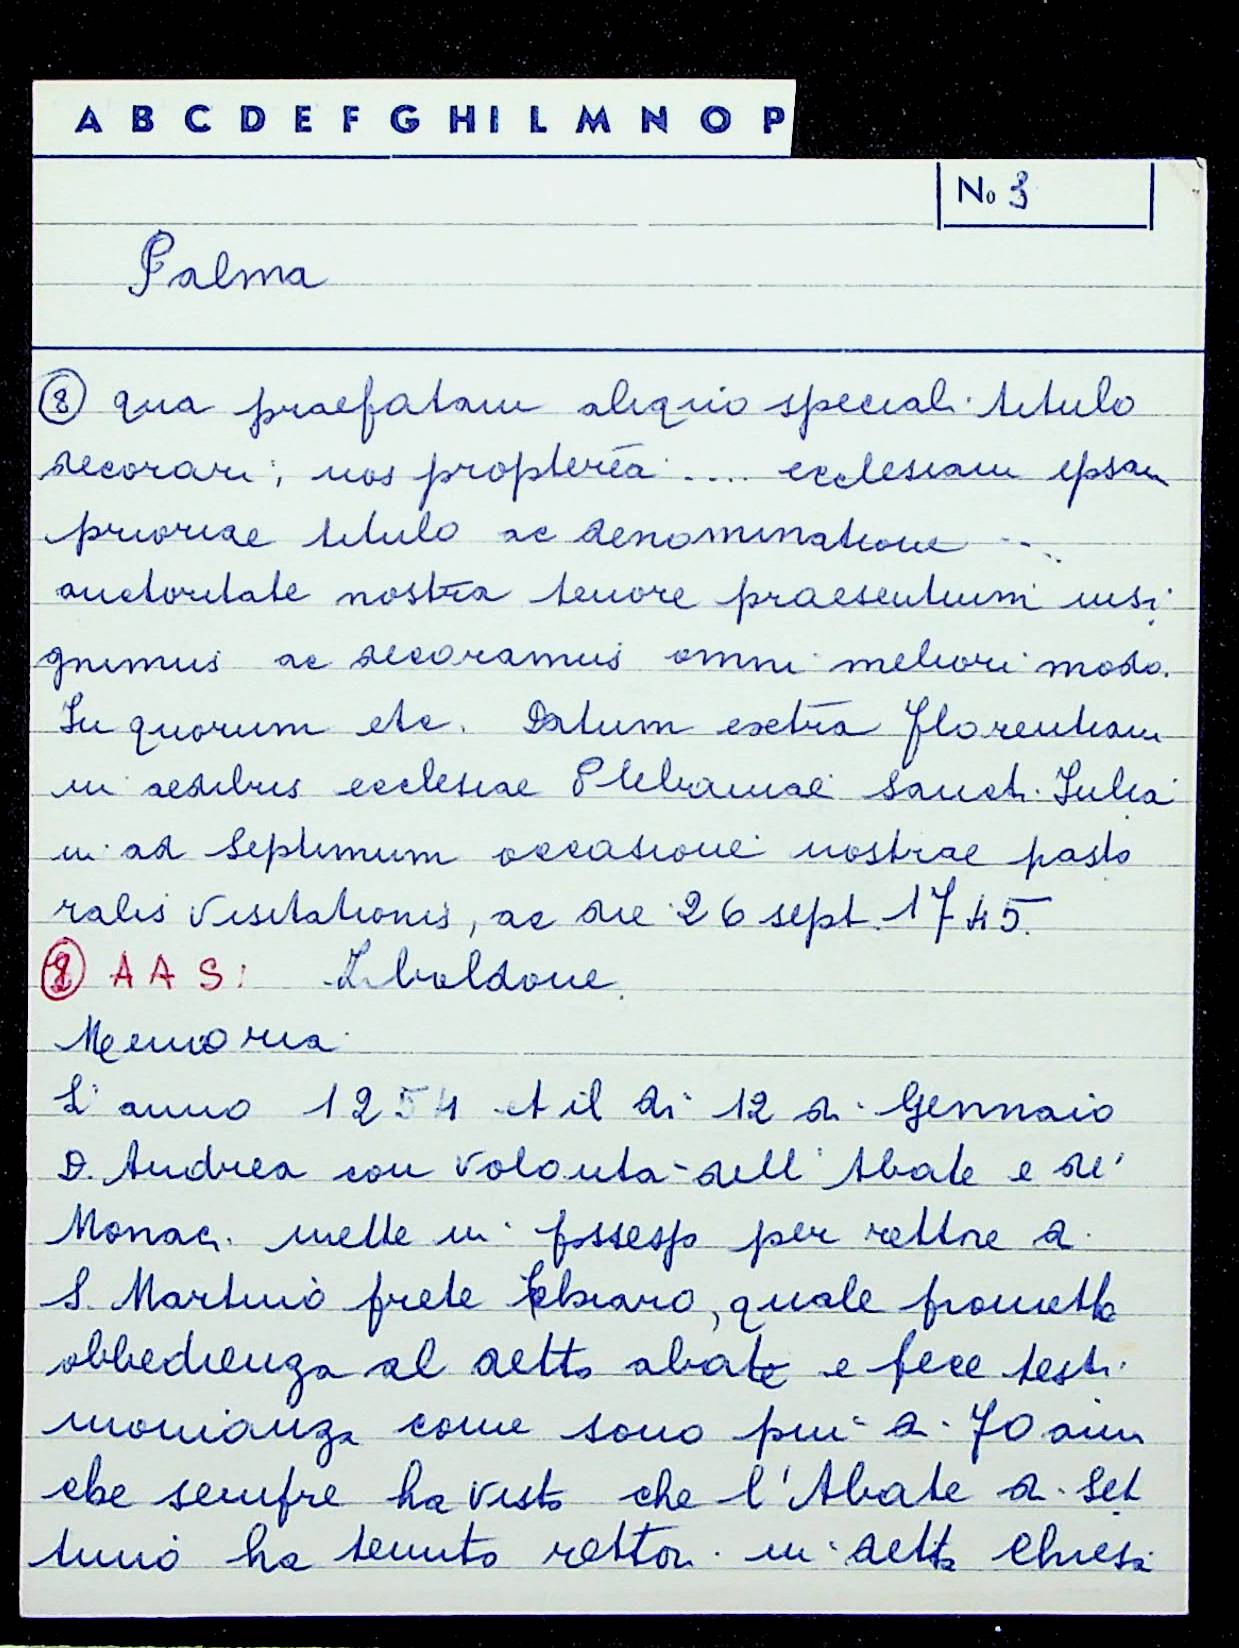 A B C D E F G H I L M N O P
No 3
Palma
⑧ qua praefatam aliquo speciali titulo
decorari; nos propterea .... ecclesiam ipsam
prioriae titulo ac denominatione ....
auctoritate nostra tenore praesentium insi
gnimus ac decoramus omni meliori modo.
In quorum etc. Datum extra Florentiam
in aedibus ecclesiae Plebaniae Sancti Iulia
ni ad Septimum occasione nostrae pasto
ralis visitationis, ac die 26 sept. 1745.
A A S: Zibaldone.
Memoria
L'anno 1254 et il di 12 di Gennaio
D. Andrea con volontà dell'Abate e de'
Monaci mette in possesso per rettore di
S. Martino frete quale promette
obbedienza al detto abate e fece testi
monianza come sono più di 70 anni
che sempre ha visto che l'Abate di Set
timo ha tenuto rettori in detta Chiesa